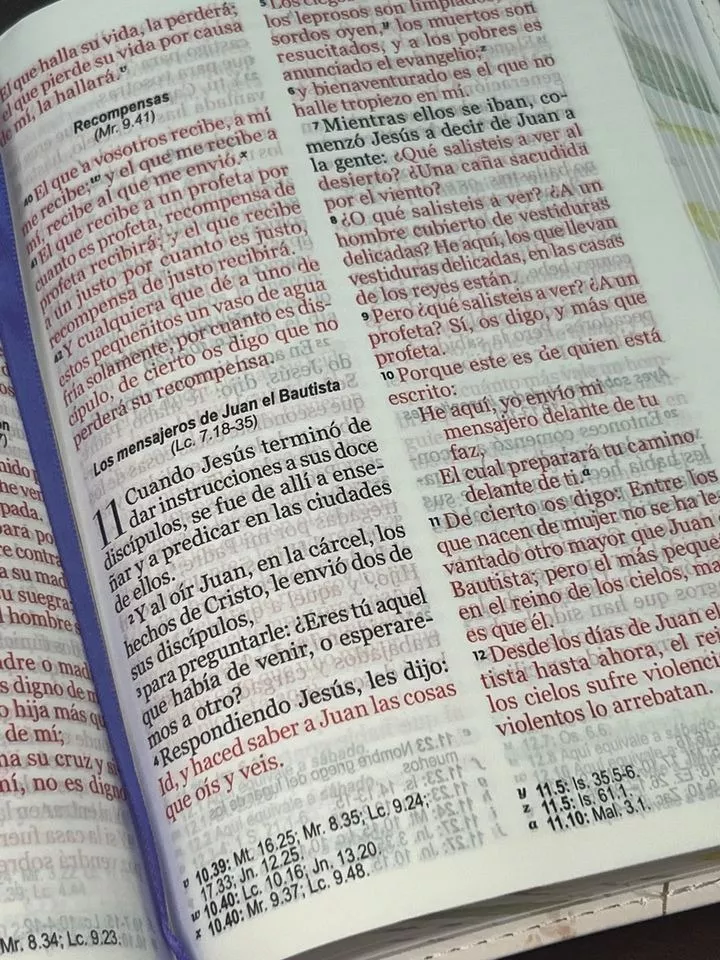 nido
he ver
pada.
ará po
re contra
a su mad
u suegra;
l hombre s
adre o mad
s digno de m
o hija más qu
de mí;
ma su cruz y si
mí, no es digno
Mr. 8.34; Lc. 9.23.
El que halla su vida, la perderá;
el que pierde su vida por causa
de mí, la hallará.v
Recompensas
(Mr. 9.41)
40 El que a vosotros recibe, a mí
me recibe;w y el que me recibe a
mí, recibe al que me envió.x
41 El que recibe a un profeta por
cuanto es profeta, recompensa de
profeta recibirá; y el que recibe
a un justo por cuanto es justo,
recompensa de justo recibirá.
42 Y cualquiera que dé a uno de
estos pequeñitos un vaso de agua
fría solamente, por cuanto es dis-
cípulo, de cierto os digo que no
perderá su recompensa.
Los mensajeros de Juan el Bautista
(Lc. 7.18-35)
11 Cuando Jesús terminó de
dar instrucciones a sus doce
discípulos, se fue de allí a ense-
ñar y a predicar en las ciudades
de ellos.
2 Y al oír Juan, en la cárcel, los
hechos de Cristo, le envió dos de
sus discípulos,
3 para preguntarle: ¿Eres tú aquel
que había de venir, o esperare-
mos a otro?
4 Respondiendo Jesús, les dijo:
Id, y haced saber a Juan las cosas
que oís y veis.
v 10.39: Mt. 16.25; Mr. 8.35; Lc. 9.24;
17.33; Jn. 12.25.
w 10.40: Lc. 10.16; Jn. 13.20.
x 10.40: Mr. 9.37; Lc. 9.48.
5 Los ciegos
los leprosos son limpiados,
sordos oyen,y los muertos son
resucitados, y a los pobres es
anunciado el evangelio;z
6 y bienaventurado es el que no
halle tropiezo en mí.
7 Mientras ellos se iban, co-
menzó Jesús a decir de Juan a
la gente: ¿Qué salisteis a ver al
desierto? ¿Una caña sacudida
por el viento?
8 ¿O qué salisteis a ver? ¿A un
hombre cubierto de vestiduras
delicadas? He aquí, los que llevan
vestiduras delicadas, en las casas
de los reyes están.
9 Pero ¿qué salisteis a ver? ¿A un
profeta? Sí, os digo, y más que
profeta.
10 Porque este es de quien está
escrito:
He aquí, yo envío mi
mensajero delante de tu
faz,
El cual preparará tu camino
delante de ti.a
11 De cierto os digo: Entre los
que nacen de mujer no se ha le
vantado otro mayor que Juan
Bautista; pero el más peque
en el reino de los cielos, ma
es que él.
12 Desde los días de Juan el
tista hasta ahora, el rei
los cielos sufre violenci
violentos lo arrebatan.
y 11.5: Is. 35.5-6.
z 11.5: Is. 61.1.
a 11.10: Mal. 3.1.